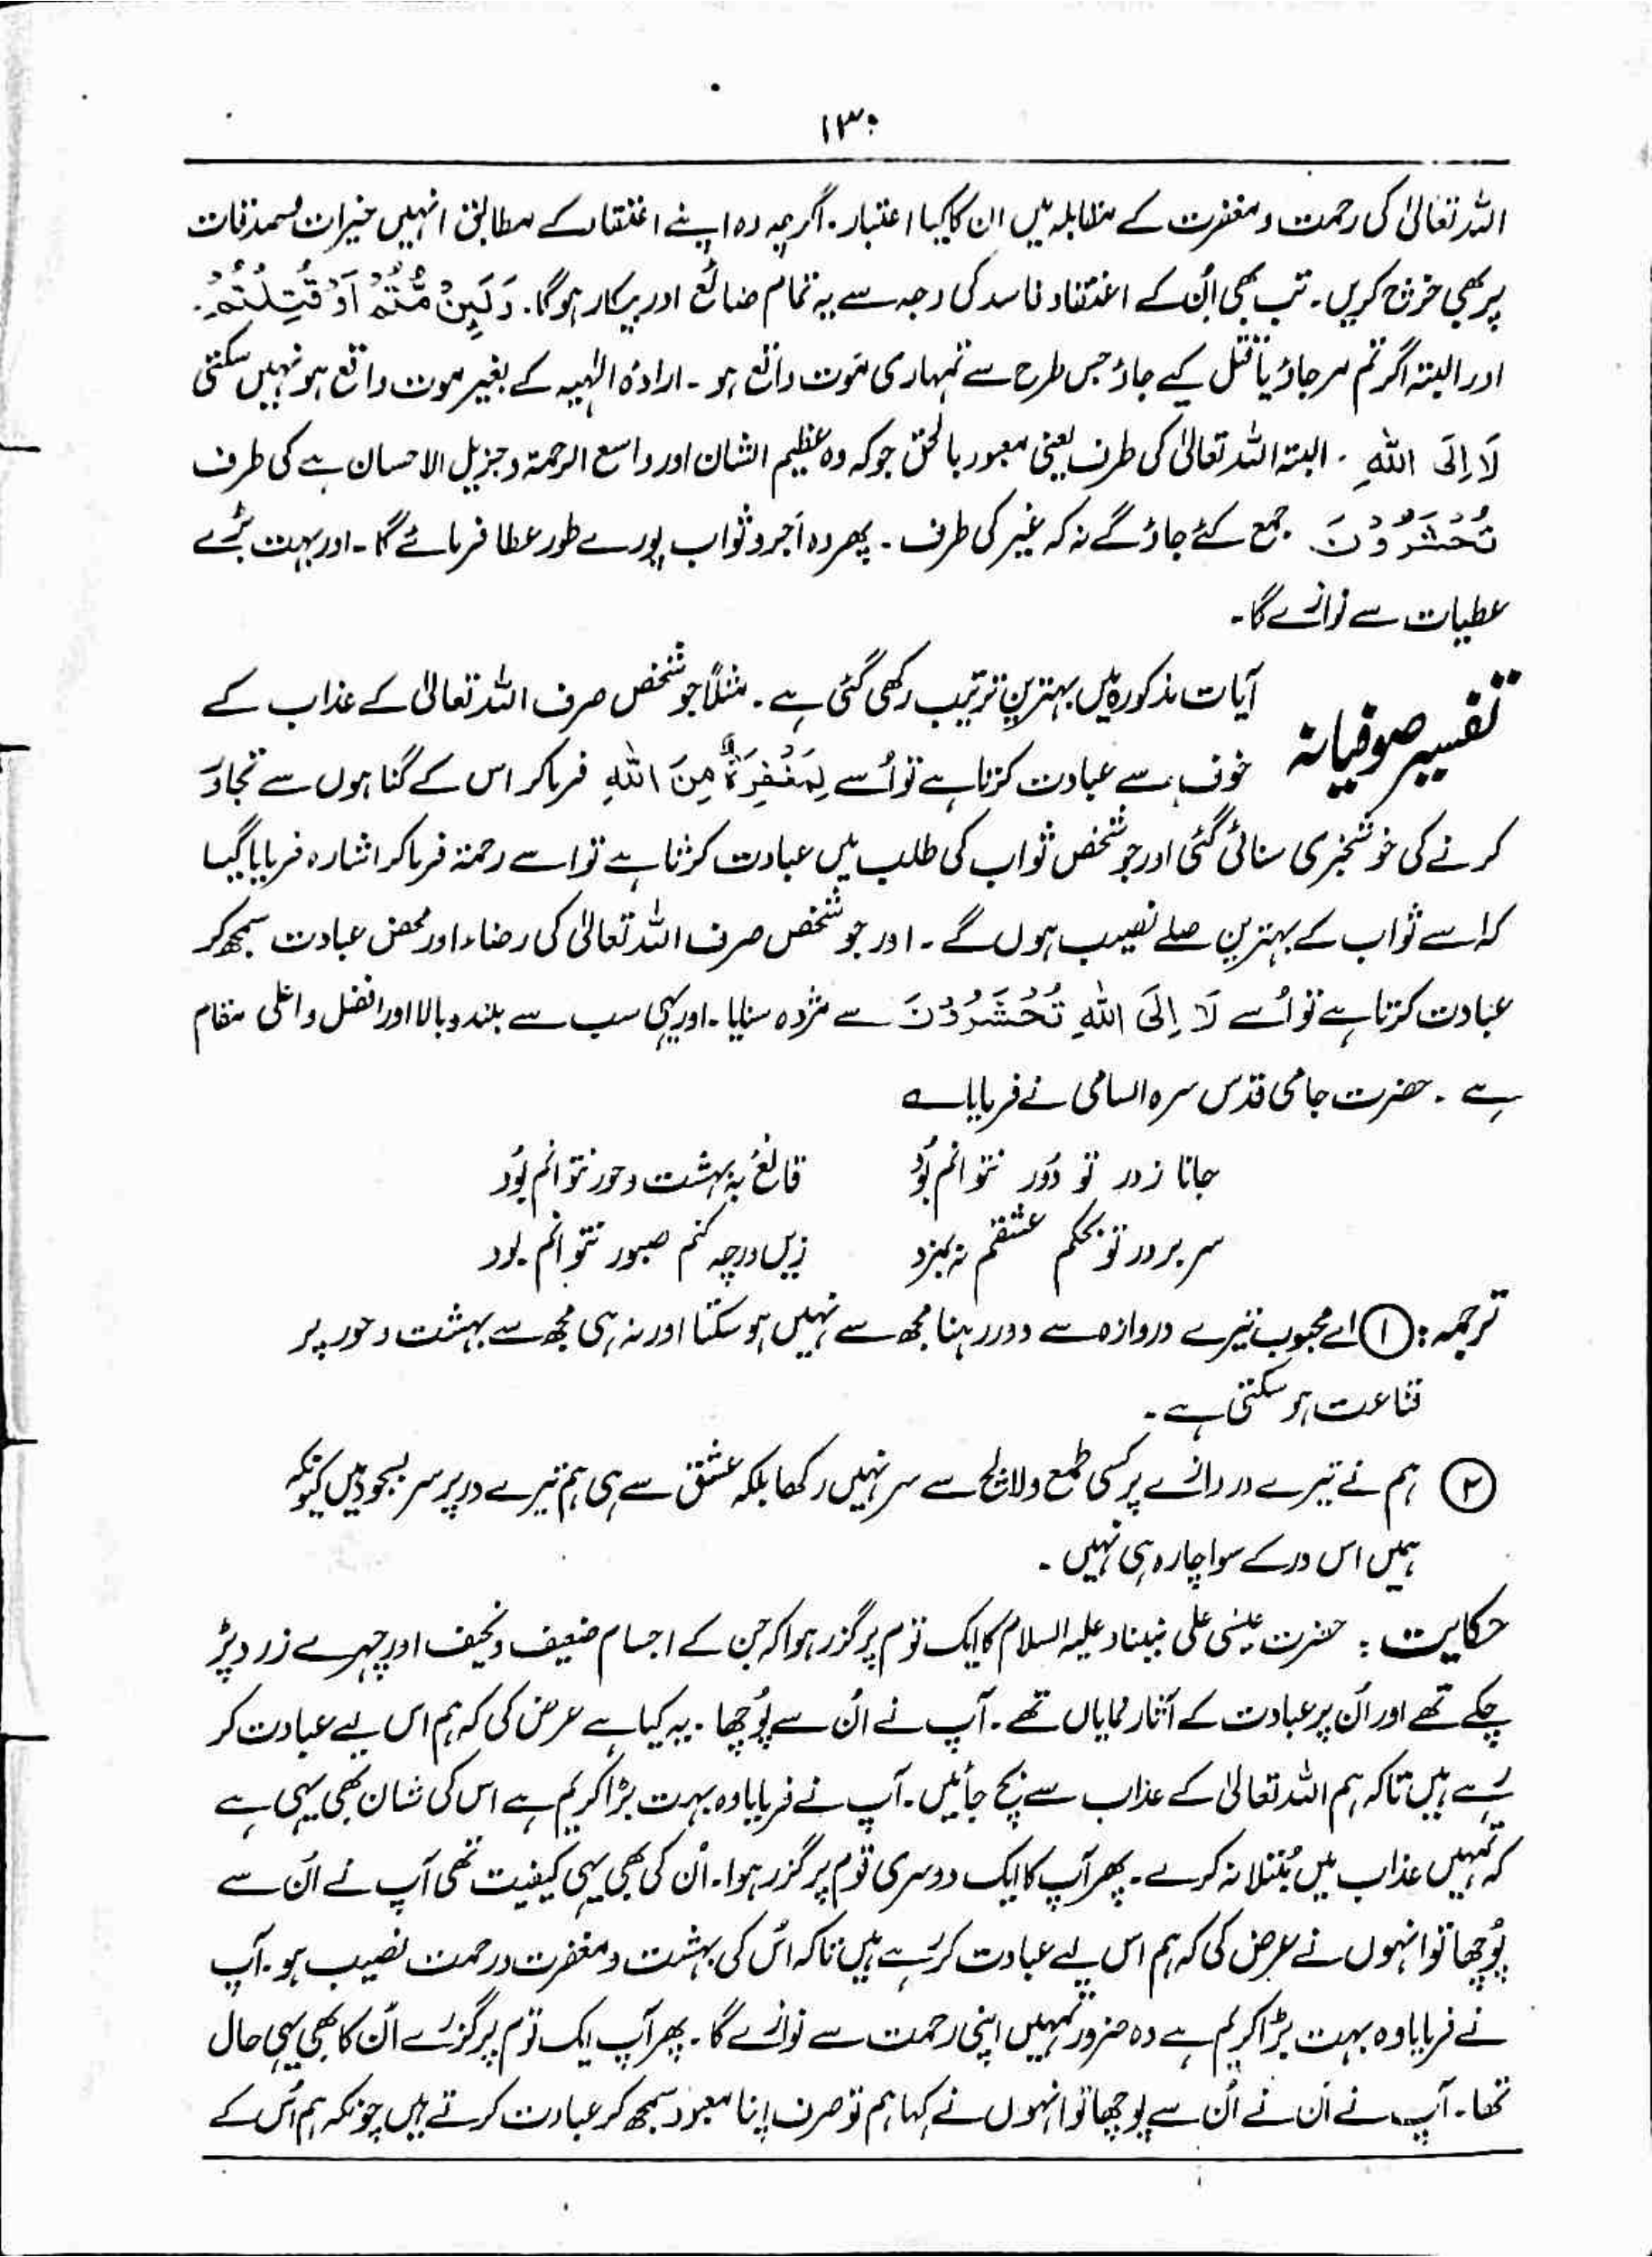 ۱۳۰
اللہ تعالیٰ کی رحمت و مغفرت کے مقابلہ میں ان کا کیا اعتبار۔ اگرچہ وہ اپنے اعتقاد کے مطابق انہیں خیرات و صدقات
پر بھی خرچ کریں۔ تب بھی اُن کے اعتقاد فاسد کی وجہ سے یہ تمام ضائع اور بیکار ہوگا۔ وَلَئِنْ مُّتُّمْ اَوْ قُتِلْتُمْ۔
اور البتہ اگر تم مرجاؤ یا قتل کیے جاؤ جس طرح سے تمہاری مَوت واقع ہو۔ ارادۂ الٰہیہ کے بغیر موت واقع ہو نہیں سکتی
لَا اِلَی اللّٰہِ۔ البتہ اللہ تعالیٰ کی طرف یعنی معبود بالحق جو کہ وہ عظیم الشان اور واسع الرحمۃ وجزیل الاحسان ہے کی طرف
تُحْشَرُوْنَ جمع کئے جاؤ گے نہ کہ غیر کی طرف۔ پھر وہ اَجر و ثواب پورے طور عطا فرمائے گا۔ اور بہت بڑے
عطیات سے نوازے گا۔
تفسیر صوفیانہ آیات مذکورہ میں بہترین ترتیب رکھی گئی ہے۔ مثلاً جو شخص صرف اللہ تعالیٰ کے عذاب کے
خوف سے عبادت کرتا ہے تو اُسے لِمَغْفِرَۃٌ مِنَ اللّٰہِ فرماکر اس کے گناہوں سے تجاوز
کرنے کی خوشخبری سنائی گئی اور جو شخص ثواب کی طلب میں عبادت کرتا ہے تو اسے رحمۃ فرماکر اشارہ فرمایا گیا
کہ اسے ثواب کے بہترین صلے نصیب ہوں گے۔ اور جو شخص صرف اللہ تعالیٰ کی رضاء اور محض عبادت سمجھ کر
عبادت کرتا ہے تو اُسے لَا اِلَی اللّٰہِ تُحْشَرُوْنَ سے مژدہ سنایا۔ اور یہی سب سے بلند و بالا اور افضل و اعلی مقام
ہے۔ حضرت جامی قدس سرہ السامی نے فرمایا؎
جانا ز در تو دَور نتوانم بوُد قانع بہ بہشت و حور نتوانم بوُد
سر بر در تو بحکم عشقم نہ بمزد زیں در چہ کنم صبور نتوانم بود
ترجمہ: ① اے محبوب تیرے دروازہ سے دور رہنا مجھ سے نہیں ہوسکتا اور نہ ہی مجھ سے بہشت و حور پر
قناعت ہو سکتی ہے۔
② ہم نے تیرے دروازے پر کسی طمع و لالچ سے سر نہیں رکھا بلکہ عشق سے ہی ہم تیرے در پر سر بسجود ہیں کیونکہ
ہمیں اس در کے سوا چارہ ہی نہیں۔
حکایت: حضرت عیسٰی علی نبینا و علیہ السلام کا ایک قوم پر گزر ہوا کہ جن کے اجسام ضعیف و نحیف اور چہرے زرد پڑ
چکے تھے اور اُن پر عبادت کے آثار نمایاں تھے۔ آپ نے اُن سے پُوچھا۔ یہ کیا ہے عرض کی کہ ہم اس لیے عبادت کر
رہے ہیں تاکہ ہم اللہ تعالیٰ کے عذاب سے بچ جائیں۔ آپ نے فرمایا وہ بہت بڑا کریم ہے اس کی شان بھی یہی ہے
کہ تمہیں عذاب میں مُبتلا نہ کرے۔ پھر آپ کا ایک دوسری قوم پر گزر ہوا۔ اُن کی بھی یہی کیفیت تھی آپ نے اُن سے
پُوچھا تو انہوں نے عرض کی کہ ہم اس لیے عبادت کر رہے ہیں تاکہ اُس کی بہشت و مغفرت و رحمت نصیب ہو۔ آپ
نے فرمایا وہ بہت بڑا کریم ہے وہ ضرور تمہیں اپنی رحمت سے نوازے گا۔ پھر آپ ایک قوم پر گزرے اُن کا بھی یہی حال
تھا۔ آپ نے اُن نے اُن سے پوچھا تو انہوں نے کہا ہم تو صرف اپنا معبود سمجھ کر عبادت کرتے ہیں چونکہ ہم اُس کے